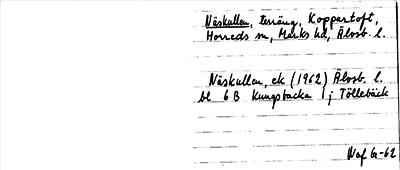 Näskullen, terräng, Koppartoft,
Horreds sn, Marks hd, Älvsb. l.
Näskullen, ek (1962) Älvsb. l.
bl 6 B Kungsbacka 1 j Töllebäck
Waf G-62